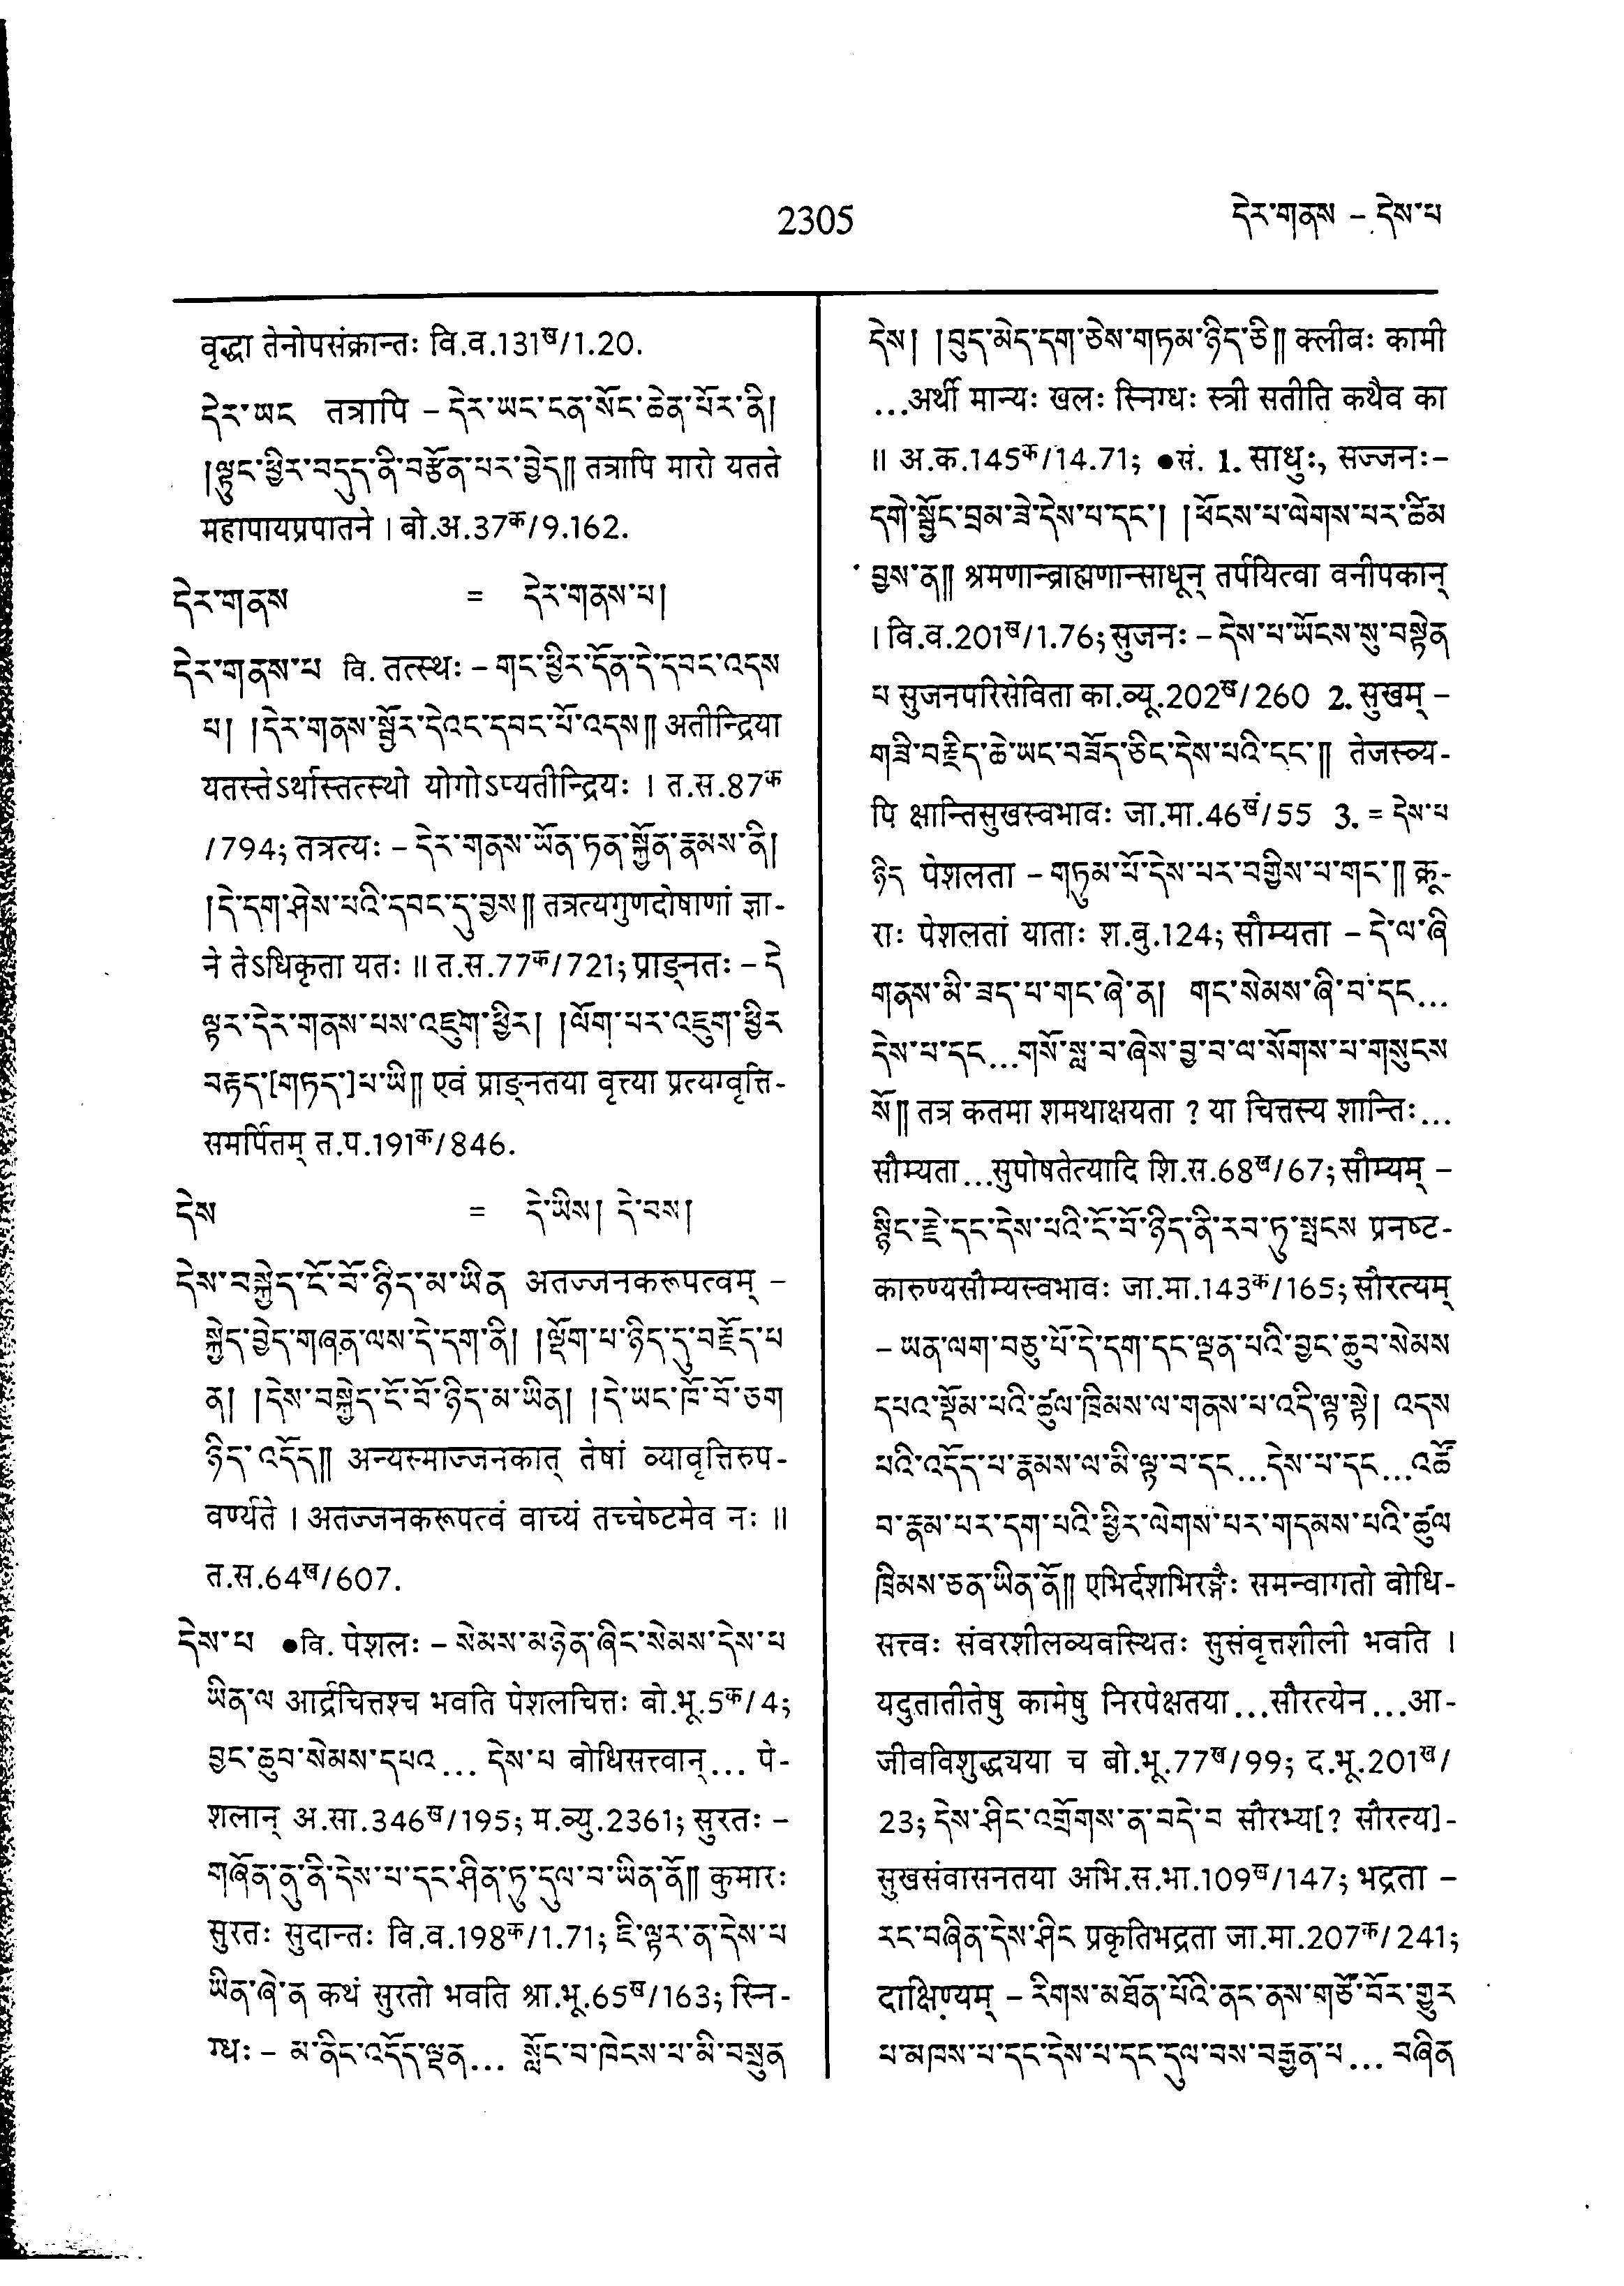 2305
དེར་གནས – དེས་པ
वृद्धा तेनोपसंक्रान्तः वि.व.131ख/1.20.
དེར་ཡང तत्रापि – དེར་ཡང་ངན་སོང་ཆེན་པོར་ནི།
།ལྟུང་ཕྱིར་བདུད་ནི་བརྩོན་པར་བྱེད༎ तत्रापि मारो यतते
महापायप्रपातने । बो.अ.37क/9.162.
དེར་གནས = དེར་གནས་པ།
དེར་གནས་པ वि. तत्स्थः – གང་ཕྱིར་དོན་དེ་དབང་འདས
པ། །དེར་གནས་སྦྱོར་དེའང་དབང་པོ་འདས༎ अतीन्द्रिया
यतस्तेऽर्थास्तत्स्थो योगोऽप्यतीन्द्रियः । त.स.87क
/794; तत्रत्यः – དེར་གནས་ཡོན་ཏན་སྐྱོན་རྣམས་ནི།
།དེ་དག་ཤེས་པའི་དབང་དུ་བྱས༎ तत्रत्यगुणदोषाणां ज्ञा-
ने तेऽधिकृता यतः ॥ त.स.77क/721; प्राङ्नतः – དེ
ལྟར་དེར་གནས་པས་འཇུག་ཕྱིར། །ལོག་པར་འཇུག་ཕྱིར
བརྟད་[གཏད་]པ་ཡི༎ एवं प्राङ्नतया वृत्त्या प्रत्यग्वृत्ति-
समर्पितम् त.प.191क/846.
དེས = དེ་ཡིས། དེ་བས།
དེས་བསྐྱེད་ངོ་བོ་ཉིད་མ་ཡིན अतज्जनकरूपत्वम् –
སྐྱེད་བྱེད་གཞན་ལས་དེ་དག་ནི། །ལྡོག་པ་ཉིད་དུ་བརྗོད་པ
ན། །དེས་བསྐྱེད་ངོ་བོ་ཉིད་མ་ཡིན། །དེ་ཡང་ཁོ་བོ་ཅག
ཉིད་འདོད༎ अन्यस्माज्जनकात् तेषां व्यावृत्तिरुप-
वर्ण्यते । अतज्जनकरूपत्वं वाच्यं तच्चेष्टमेव नः ॥
त.स.64ख/607.
དེས་པ ●वि. पेशलः – སེམས་མཉེན་ཞིང་སེམས་དེས་པ
ཡིན་ལ आर्द्रचित्तश्च भवति पेशलचित्तः बो.भू.5क/4;
བྱང་ཆུབ་སེམས་དཔའ... དེས་པ बोधिसत्त्वान्... पे-
शलान् अ.सा.346ख/195; म.व्यु.2361; सुरतः –
གཞོན་ནུ་ནི་དེས་པ་དང་ཤིན་ཏུ་དུལ་བ་ཡིན་ནོ༎ कुमारः
सुरतः सुदान्तः वि.व.198क/1.71; ཇི་ལྟར་ན་དེས་པ
ཡིན་ཞེ་ན कथं सुरतो भवति श्रा.भू.65ख/163; स्नि-
ग्धः – མ་ནིང་འདོད་ལྡན... སློང་བ་ཁེངས་པ་མི་བསྲུན
དེས། །བུད་མེད་དག་ཅེས་གཏམ་ཉིད་ཅི༎ क्लीबः कामी
...अर्थी मान्यः खलः स्निग्धः स्त्री सतीति कथैव का
॥ अ.क.145क/14.71; ●सं. 1. साधुः, सज्जनः–
དགེ་སྦྱོང་བྲམ་ཟེ་དེས་པ་དང་། །ཕོངས་པ་ལེགས་པར་ཚིམ
བྱས་ན༎ श्रमणान्ब्राह्मणान्साधून् तर्पयित्वा वनीपकान्
। वि.व.201ख/1.76; सुजनः – དེས་པ་ཡོངས་སུ་བསྟེན
པ सुजनपरिसेविता का.व्यू.202ख/260 2. सुखम् –
གཟི་བརྗིད་ཆེ་ཡང་བཟོད་ཅིང་དེས་པའི་ངང་༎ तेजस्व्य-
पि क्षान्तिसुखस्वभावः जा.मा.46ख/55 3. = དེས་པ
ཉིད पेशलता – གཏུམ་པོ་དེས་པར་བགྱིས་པ་གང་༎ क्रू-
राः पेशलतां याताः श.बु.124; सौम्यता – དེ་ལ་ཞི
གནས་མི་ཟད་པ་གང་ཞེ་ན། གང་སེམས་ཞི་བ་དང...
དེས་པ་དང...གསོ་སླ་བ་ཞེས་བྱ་བ་ལ་སོགས་པ་གསུངས
སོ༎ तत्र कतमा शमथाक्षयता ? या चित्तस्य शान्तिः...
सौम्यता...सुपोषतेत्यादि शि.स.68ख/67; सौम्यम् –
སྙིང་རྗེ་དང་དེས་པའི་ངོ་བོ་ཉིད་ནི་རབ་ཏུ་སྤངས प्रनष्ट-
कारुण्यसौम्यस्वभावः जा.मा.143क/165; सौरत्यम्
– ཡན་ལག་བཅུ་པོ་དེ་དག་དང་ལྡན་པའི་བྱང་ཆུབ་སེམས
དཔའ་སྡོམ་པའི་ཚུལ་ཁྲིམས་ལ་གནས་པ་འདི་ལྟ་སྟེ། འདས
པའི་འདོད་པ་རྣམས་ལ་མི་ལྟ་བ་དང...དེས་པ་དང...འཚོ
བ་རྣམ་པར་དག་པའི་ཕྱིར་ལེགས་པར་གདམས་པའི་ཚུལ
ཁྲིམས་ཅན་ཡིན་ནོ༎ एभिर्दशभिरङ्गैः समन्वागतो बोधि-
सत्त्वः संवरशीलव्यवस्थितः सुसंवृत्तशीली भवति ।
यदुतातीतेषु कामेषु निरपेक्षतया...सौरत्येन...आ-
जीवविशुद्ध्यया च बो.भू.77ख/99; द.भू.201ख/
23; དེས་ཤིང་འགྲོགས་ན་བདེ་བ सौरभ्य[? सौरत्य]-
सुखसंवासनतया अभि.स.भा.109ख/147; भद्रता –
རང་བཞིན་དེས་ཤིང प्रकृतिभद्रता जा.मा.207क/241;
दाक्षिण्यम् – རིགས་མཐོན་པོའི་ནང་ནས་གཙོ་བོར་གྱུར
པ་མཁས་པ་དང་དེས་པ་དང་དུལ་བས་བརྒྱན་པ... བཞིན